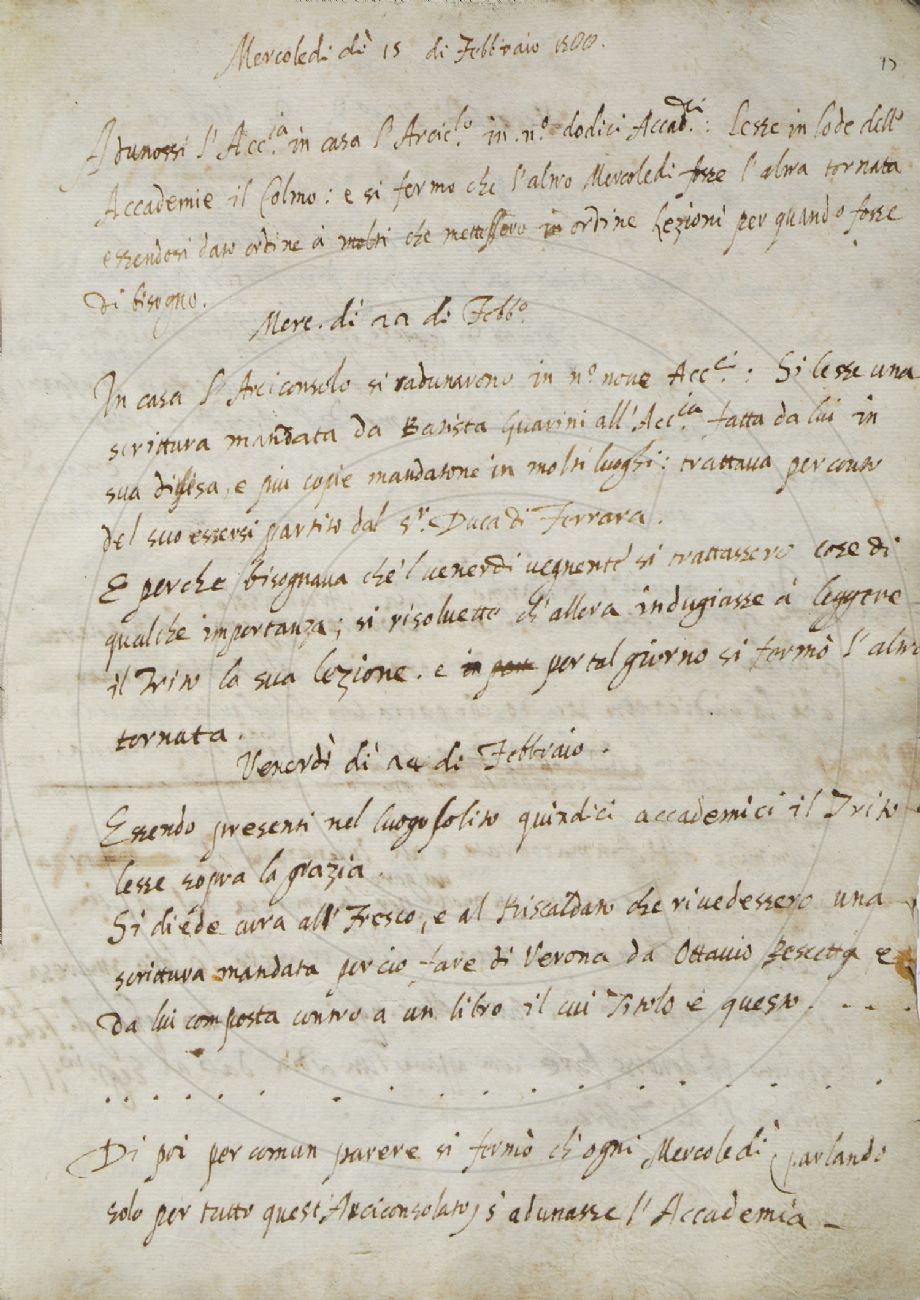 Mercoledi dì 15 di Febbraio 1588.
17
Adunossi l'Acc.ia in casa l'Arcic.lo in n.o dodici Accad.ci: lesse in lode delle
Accademie il Colmo: e si fermò che l'altro Mercoledi fosse l'altra tornata
essendosi dato ordine à molti che mettessero in ordine Lezioni per quando fosse
di bisogno.
Merc. dì 22 di Febb.o
In casa l'Arciconsolo si radunarono in n.o nove Acc.ci: Si lesse una
scrittura mandata da Batista Guarini all'Acc.ia fatta da lui in
sua difesa, e più copie mandatone in molti luoghi: trattava per conto
del suo essersi partito dal S.r Duca di Ferrara.
E perche bisognava che 'l venerdì vegnente si trattassero cose di
qualche importanza; si risolvette ch'allora indugiasse à leggere
il Trito la sua lezione. e per tal giorno si fermò l'altra
tornata.
Venerdì dì 24 di Febbraio.
Essendo presenti nel luogo solito quindici accademici il Trito
lesse sopra la grazia.
Si diede cura all'Fresco, e al Riscaldato che rivedessero una
scrittura mandata per ciò fare di Verona da Ottavio e
da lui composta contro a un libro il cui Titolo è questo. - - .
. . . . . . . . . . . . . . . . . .
Di poi per comun parere si fermò ch'ogni Mercoledì (parlando
solo per tutto quest'Arciconsolato) s'adunasse l'Accademia -